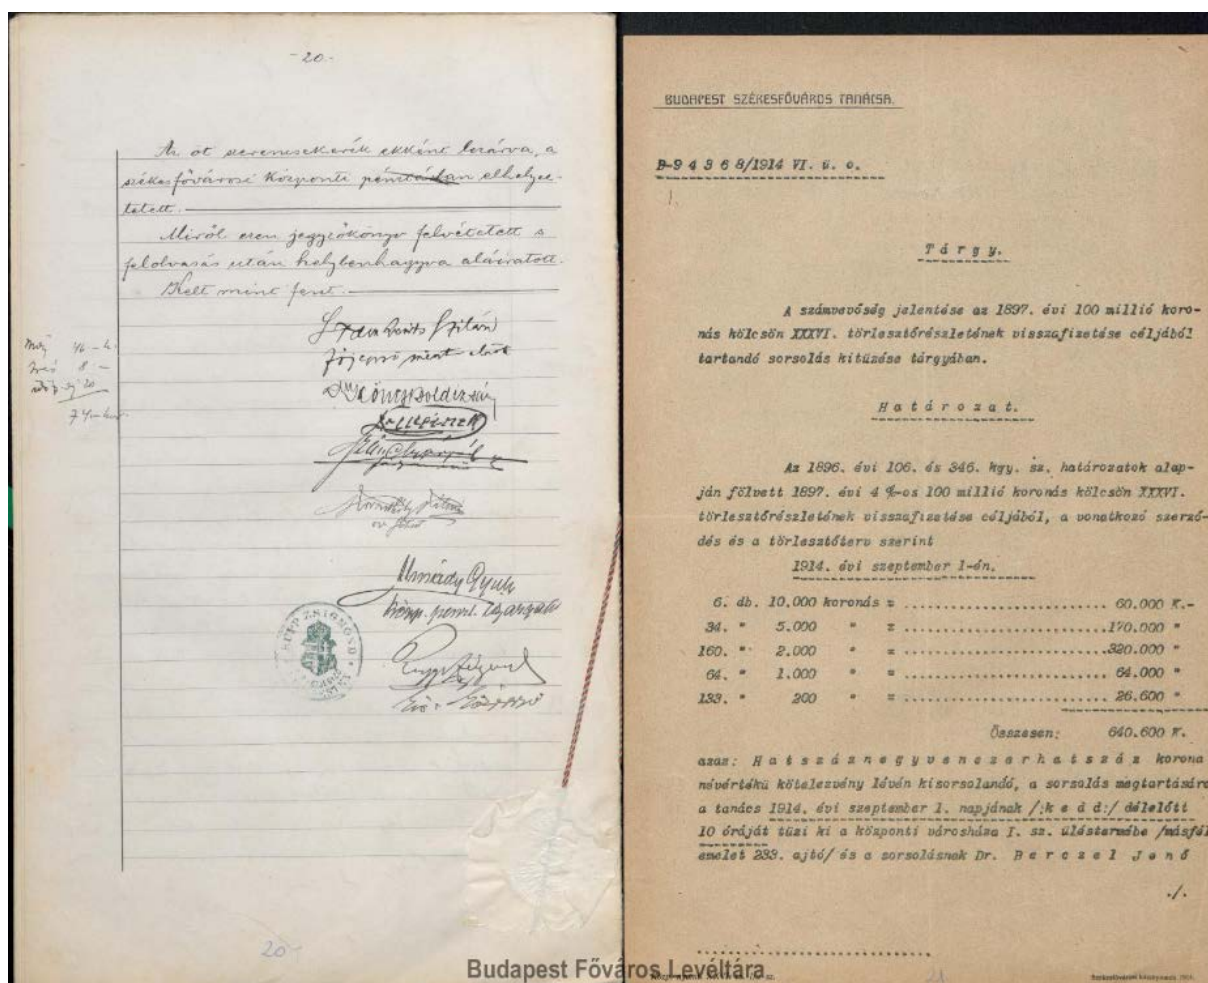 -20.-
Az öt szerencsekerék ekként lezárva, a
székesfővárosi központi pénztárban elhelyez-
tetett.
Miről ezen jegyzőkönyv felvétetett s
felolvasás után helybenhagyva aláiratott.
Kelt mint fent.
főjegyző mint elnök
46 – k.
8 –
20
74 – kor.
20
BUDAPEST SZÉKESFŐVÁROS TANÁCSA.
B-9 4 3 6 8/1914 VI. ü. o.
1.
T á r g y.
A számvevőség jelentése az 1897. évi 100 millió koro-
nás kölcsön XXXVI. törlesztőrészletének visszafizetése céljából
tartandó sorsolás kitüzése tárgyában.
H a t á r o z a t.
Az 1896. évi 106. és 346. kgy. sz. határozatok alap-
ján fölvett 1897. évi 4 %-os 100 millió koronás kölcsön XXXVI.
törlesztőrészletének visszafizetése céljából, a vonatkozó szerző-
dés és a törlesztőterv szerint
1914. évi szeptember 1-én.
6. db. 10.000 koronás = .................................. 60.000 K.-
34. " 5.000 " = ..................................170.000 "
160. " 2.000 " = ..................................320.000 "
64. " 1.000 " = .................................. 64.000 "
133. " 200 " = .................................. 26.600 "
Összesen: 640.600 K.
azaz: H a t s z á z n e g y v e n e z e r h a t s z á z korona
névértékü kötelezvény lévén kisorsolandó, a sorsolás megtartására
a tanács 1914. évi szeptember 1. napjának /:k e d d:/ délelőtt
10 óráját tüzi ki a központi városháza I. sz. üléstermébe /másfél
emelet 233. ajtó/ és a sorsolásnak Dr. B e r c z e l J e n ő
./.
21
Budapest Főváros Levéltára